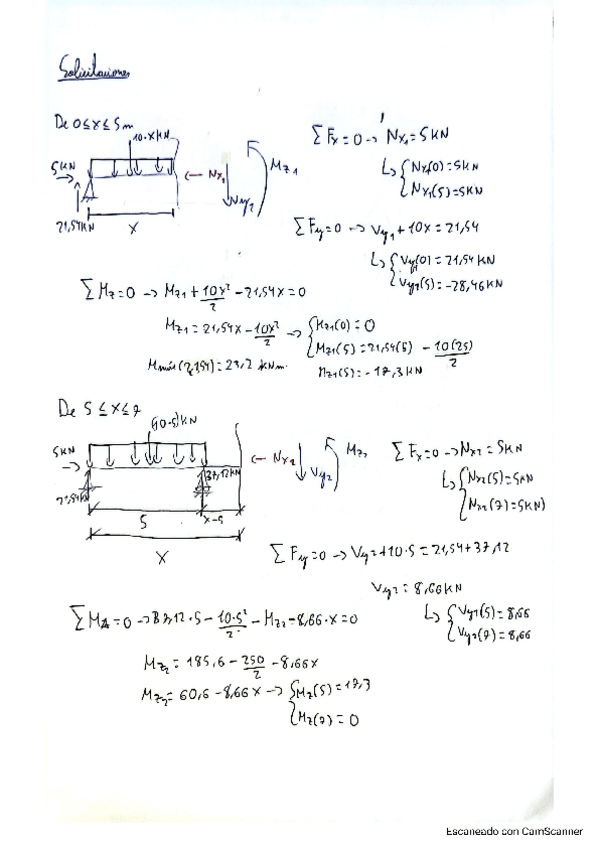 Solicitaciones
De 0≤x≤5m
10·x kN
5kN
Nx1
Vy1
Mz1
21,54kN
x
ΣFx=0→ Nx1=5kN
Nx1(0)=5kN
Nx1(5)=5kN
ΣFy=0 → Vy1+10x=21,54
Vy1(0)=21,54kN
Vy1(5)=-28,46kN
ΣMz=0 → Mz1+10x²/2-21,54x=0
Mz1=21,54x-10x²/2 → Mz1(0)=0
Mz1(5)=21,54(5) - 10(25)/2
Mmáx(2,154)=23,2 kNm.
Mz1(5)=-17,3kN
De 5≤x≤7
10·5kN
5kN
Nx2
Vy2
Mz2
37,12kN
21,54kN
5
x-5
x
ΣFx=0→Nx2=5kN
Nx2(5)=5kN
Nx2(7)=5kN
ΣFy=0 → Vy2+10·5=21,54+37,12
Vy2=8,66kN
Vy2(5)=8,66
Vy2(7)=8,66
ΣMA=0→37,12·5-10·5²/2-Mz2-8,66·x=0
Mz2=185,6-250/2-8,66x
Mz2=60,6-8,66x → Mz(5)=17,3
Mz(7)=0
Escaneado con CamScanner